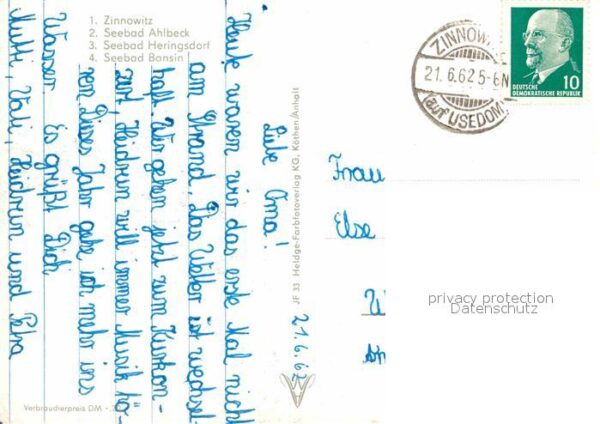 1. Zinnowitz
2. Seebad Ahlbeck
3. Seebad Heringsdorf
4. Seebad Bansin
21.6.62
Liebe Oma!
Heute waren wir das erste Mal nicht
am Strand. Das Wetter ist wechsel-
haft. Wir gehen jetzt zum Kurkon-
zert, Heidrun will immer Musik hö-
ren. Dieses Jahr gehe ich mehr ins
Wasser. Es grüßt Dich
Mutti, Vati, Heidrun und Petra
Verbraucherpreis DM
JF 33 Heldge-Farbfotoverlag KG, Köthen/Anhalt
ZINNOW
21.6.62 5-6N
auf USEDOM
10
DEUTSCHE
DEMOKRATISCHE REPUBLIK
Frau
Else
privacy protection
Datenschutz